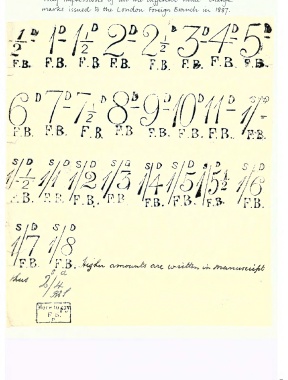 impressions of all the different
marks issued to the London Foreign Branch in 1887.
½D 1D 1½D 2D 2½D 3D 4D 5D
F.B. F.B. F.B. F.B. F.B. F.B. F.B. F.B.
6D 7D 7½D 8D 9D 10D 11D 1/-
F.B. F.B. F.B. F.B. F.B. F.B. F.B. F.B.
S/D S/D S/D S/D S/D S/D S/D S/D
1/½ 1/1 1/2 1/3 1/4 1/5 1/5½ 1/6
F.B. F.B. F.B. F.B. F.B. F.B. F.B. F.B.
S/D S/D
1/7 1/8
F.B. F.B. higher amounts are written in manuscript
thus 2/4